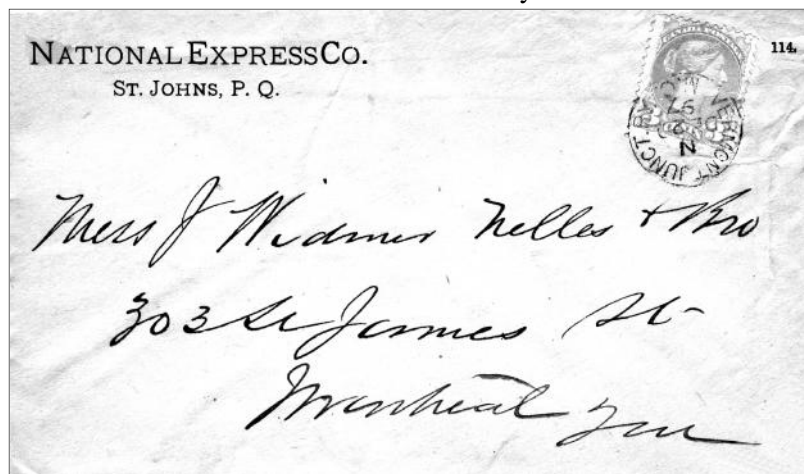 NATIONAL EXPRESS CO.
ST. JOHNS, P. Q.
114.
VERMONT JUNCT.
N
97
Mess J Widmer Nelles & Bro
303 St James St
Montreal Que